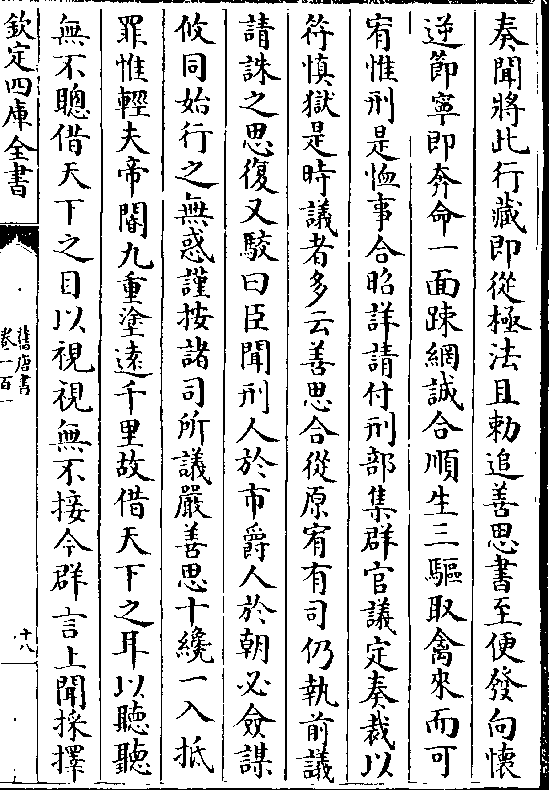 奏聞將此行藏即從極法且勅追善思書至便發向懷
逆節寧即奔命一面踈網誠合順生三驅取禽來而可
宥惟刑是恤事合昭詳請付刑部集群官議定奏裁以
符慎獄是時議者多云善思合從原宥有司仍執前議
請誅之思復又駁曰臣聞刑人於市爵人於朝必僉謀
攸同始行之無惑謹按諸司所議嚴善思十纔一入抵
罪惟輕夫帝閽九重塗遠千里故借天下之耳以聽聽
無不聰借天下之目以視視無不接今群言上聞採擇
欽定四庫全書
舊唐書
卷一百一
十八